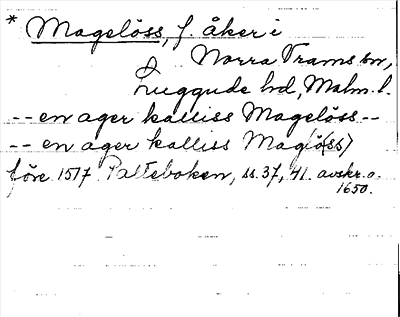 * Magelöss, f. åker i
Norra Vrams sn,
Luggude hd, Malm. l.
-- en ager kalliss Magelöss --
-- en ager kalliss Maglö(ss)
före 1517 Palteboken, ss. 37, 41. avskr. o.
1650.